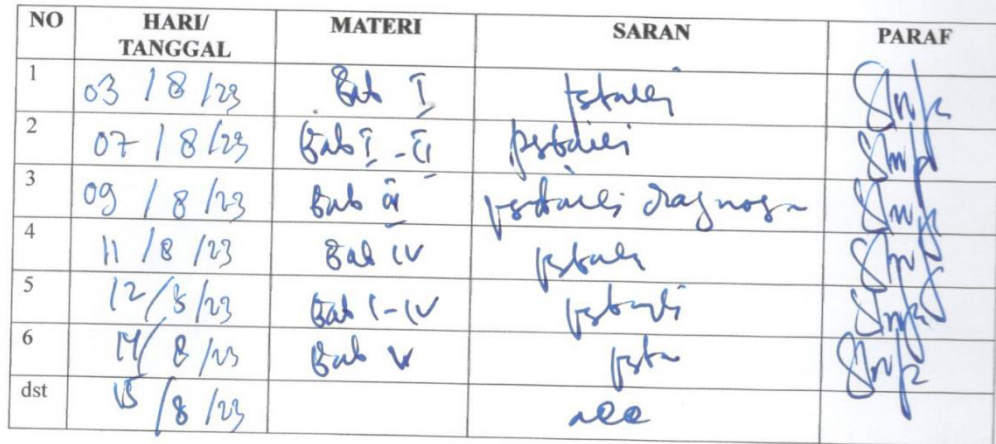 NO HARI/ TANGGAL MATERI SARAN PARAF
1 03 / 8 / 23 Bab I
2 07 / 8 / 23 Bab I - II perbaiki
3 09 / 8 / 23 Bab perbaiki diagnosa
4 11 / 8 / 23 Bab IV
5 12 / 8 / 23 Bab I - IV perbaiki
6 14 / 8 / 23 Bab V
dst 15 / 8 / 23 acc